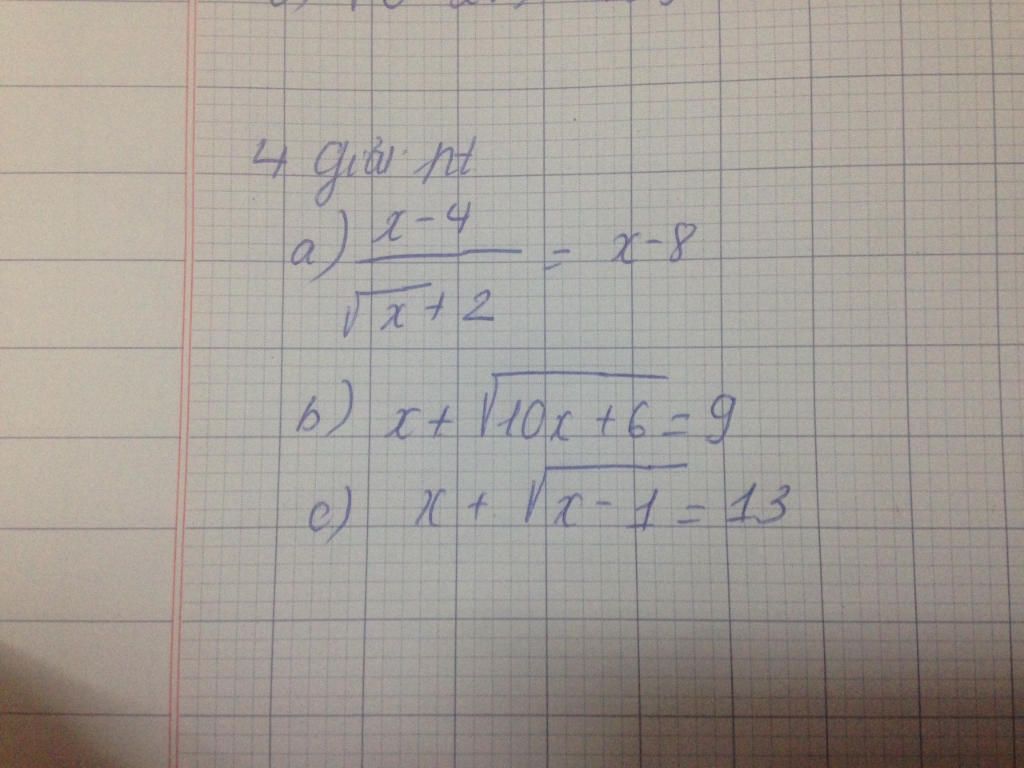 4 giải pt
a) \frac{x-4}{\sqrt{x}+2} = x-8
b) x + \sqrt{10x+6} = 9
c) x + \sqrt{x-1} = 13